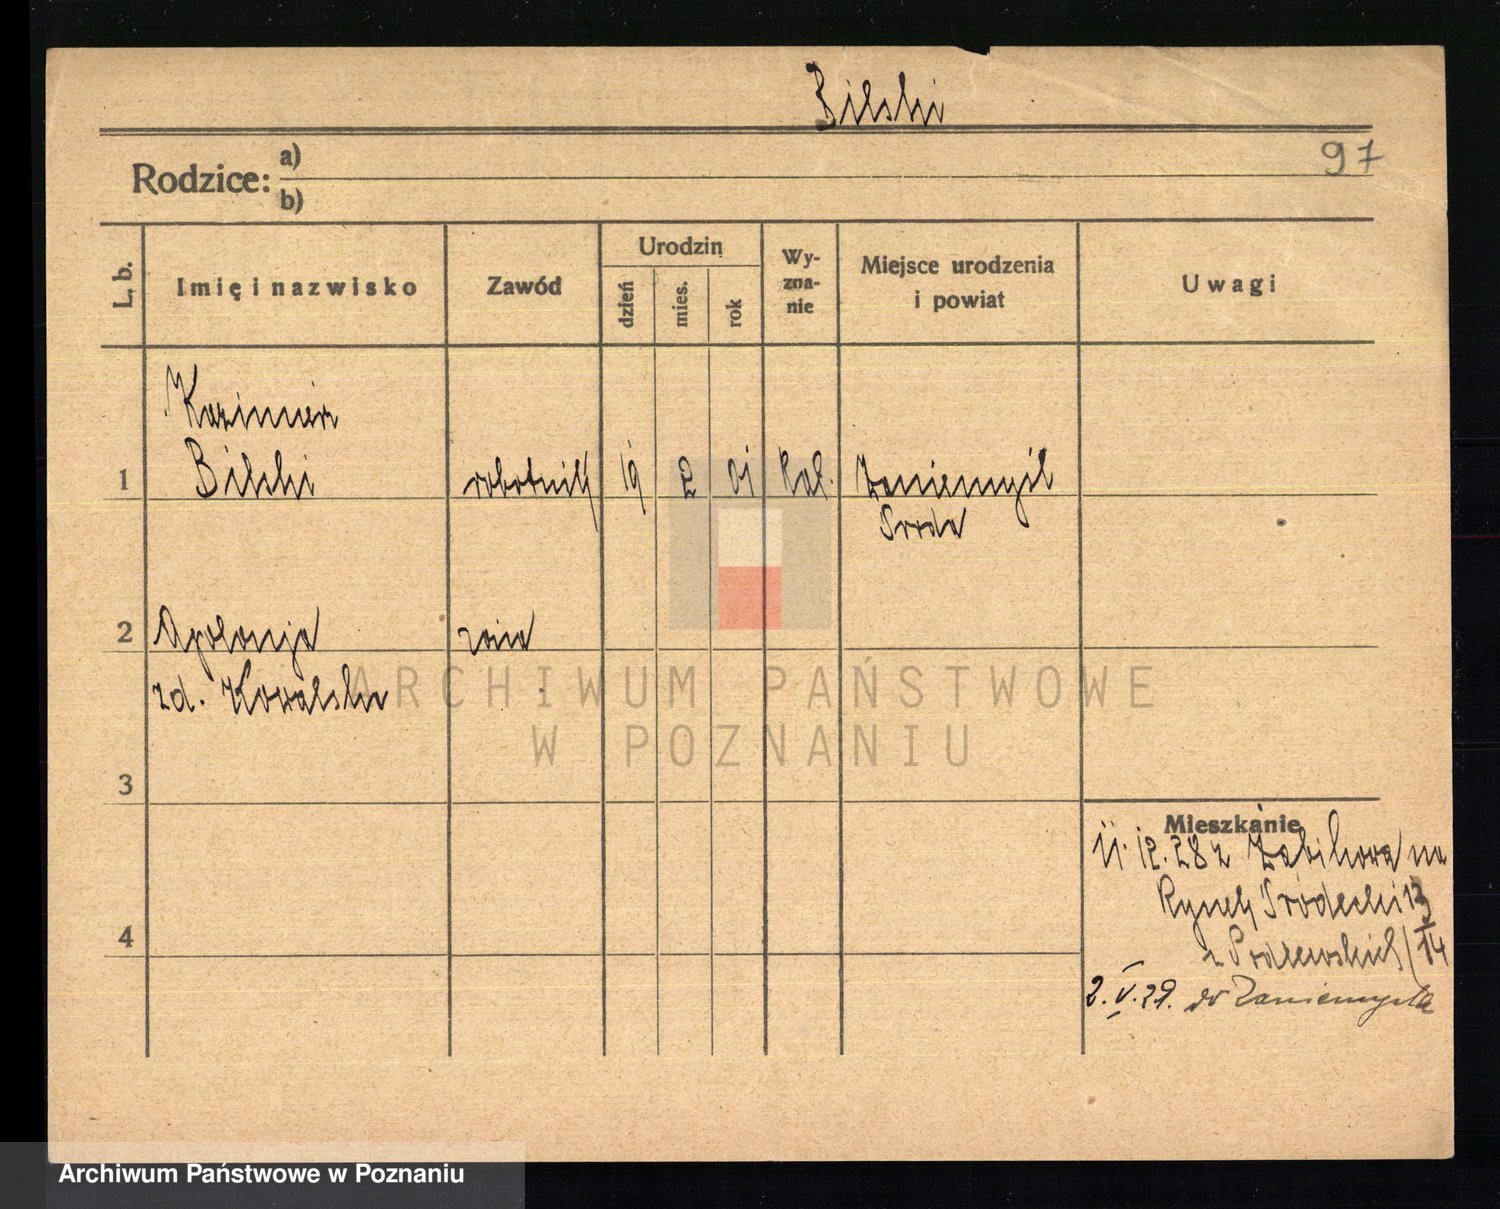 Bilski
97
Rodzice: a)
b)
L. b. Imię i nazwisko Zawód Urodzin dzień mies. rok Wy-zna-nie Miejsce urodzenia i powiat Uwagi
Kazimierz
1 Bilski robotnik 19 2 01 kat. Zaniemyśl
Środa
2 Apolonja żona
zd. Kowalska
ARCHIWUM PAŃSTWOWE
W POZNANIU
3
Mieszkanie
11. 12. 28 z Żabikowa na
Rynek Śródecki 13
4
14
2. V. 29. do Zaniemyśla
Archiwum Państwowe w Poznaniu